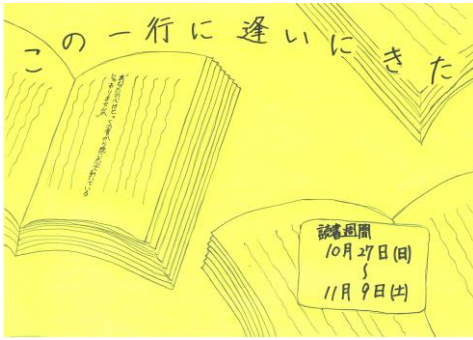 この一行に逢いにきた
読書週間
10月27日(日)
〜
11月9日(土)